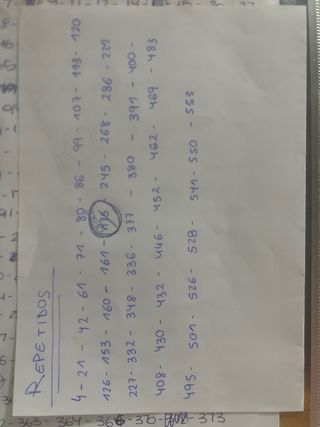 REPETIDOS
4 - 21 - 42 - 61 - 71 - 80 - 86 - 99 - 107 - 113 - 120
126 - 153 - 160 - 161 - 245 - 268 - 286 - 221
227 - 332 - 348 - 336 - 377 - 380 - 391 - 400 -
408 - 430 - 432 - 446 - 452 - 462 - 469 - 483
495 - 501 - 526 - 528 - 541 - 550 - 553
363 - 364 - 370 - 373